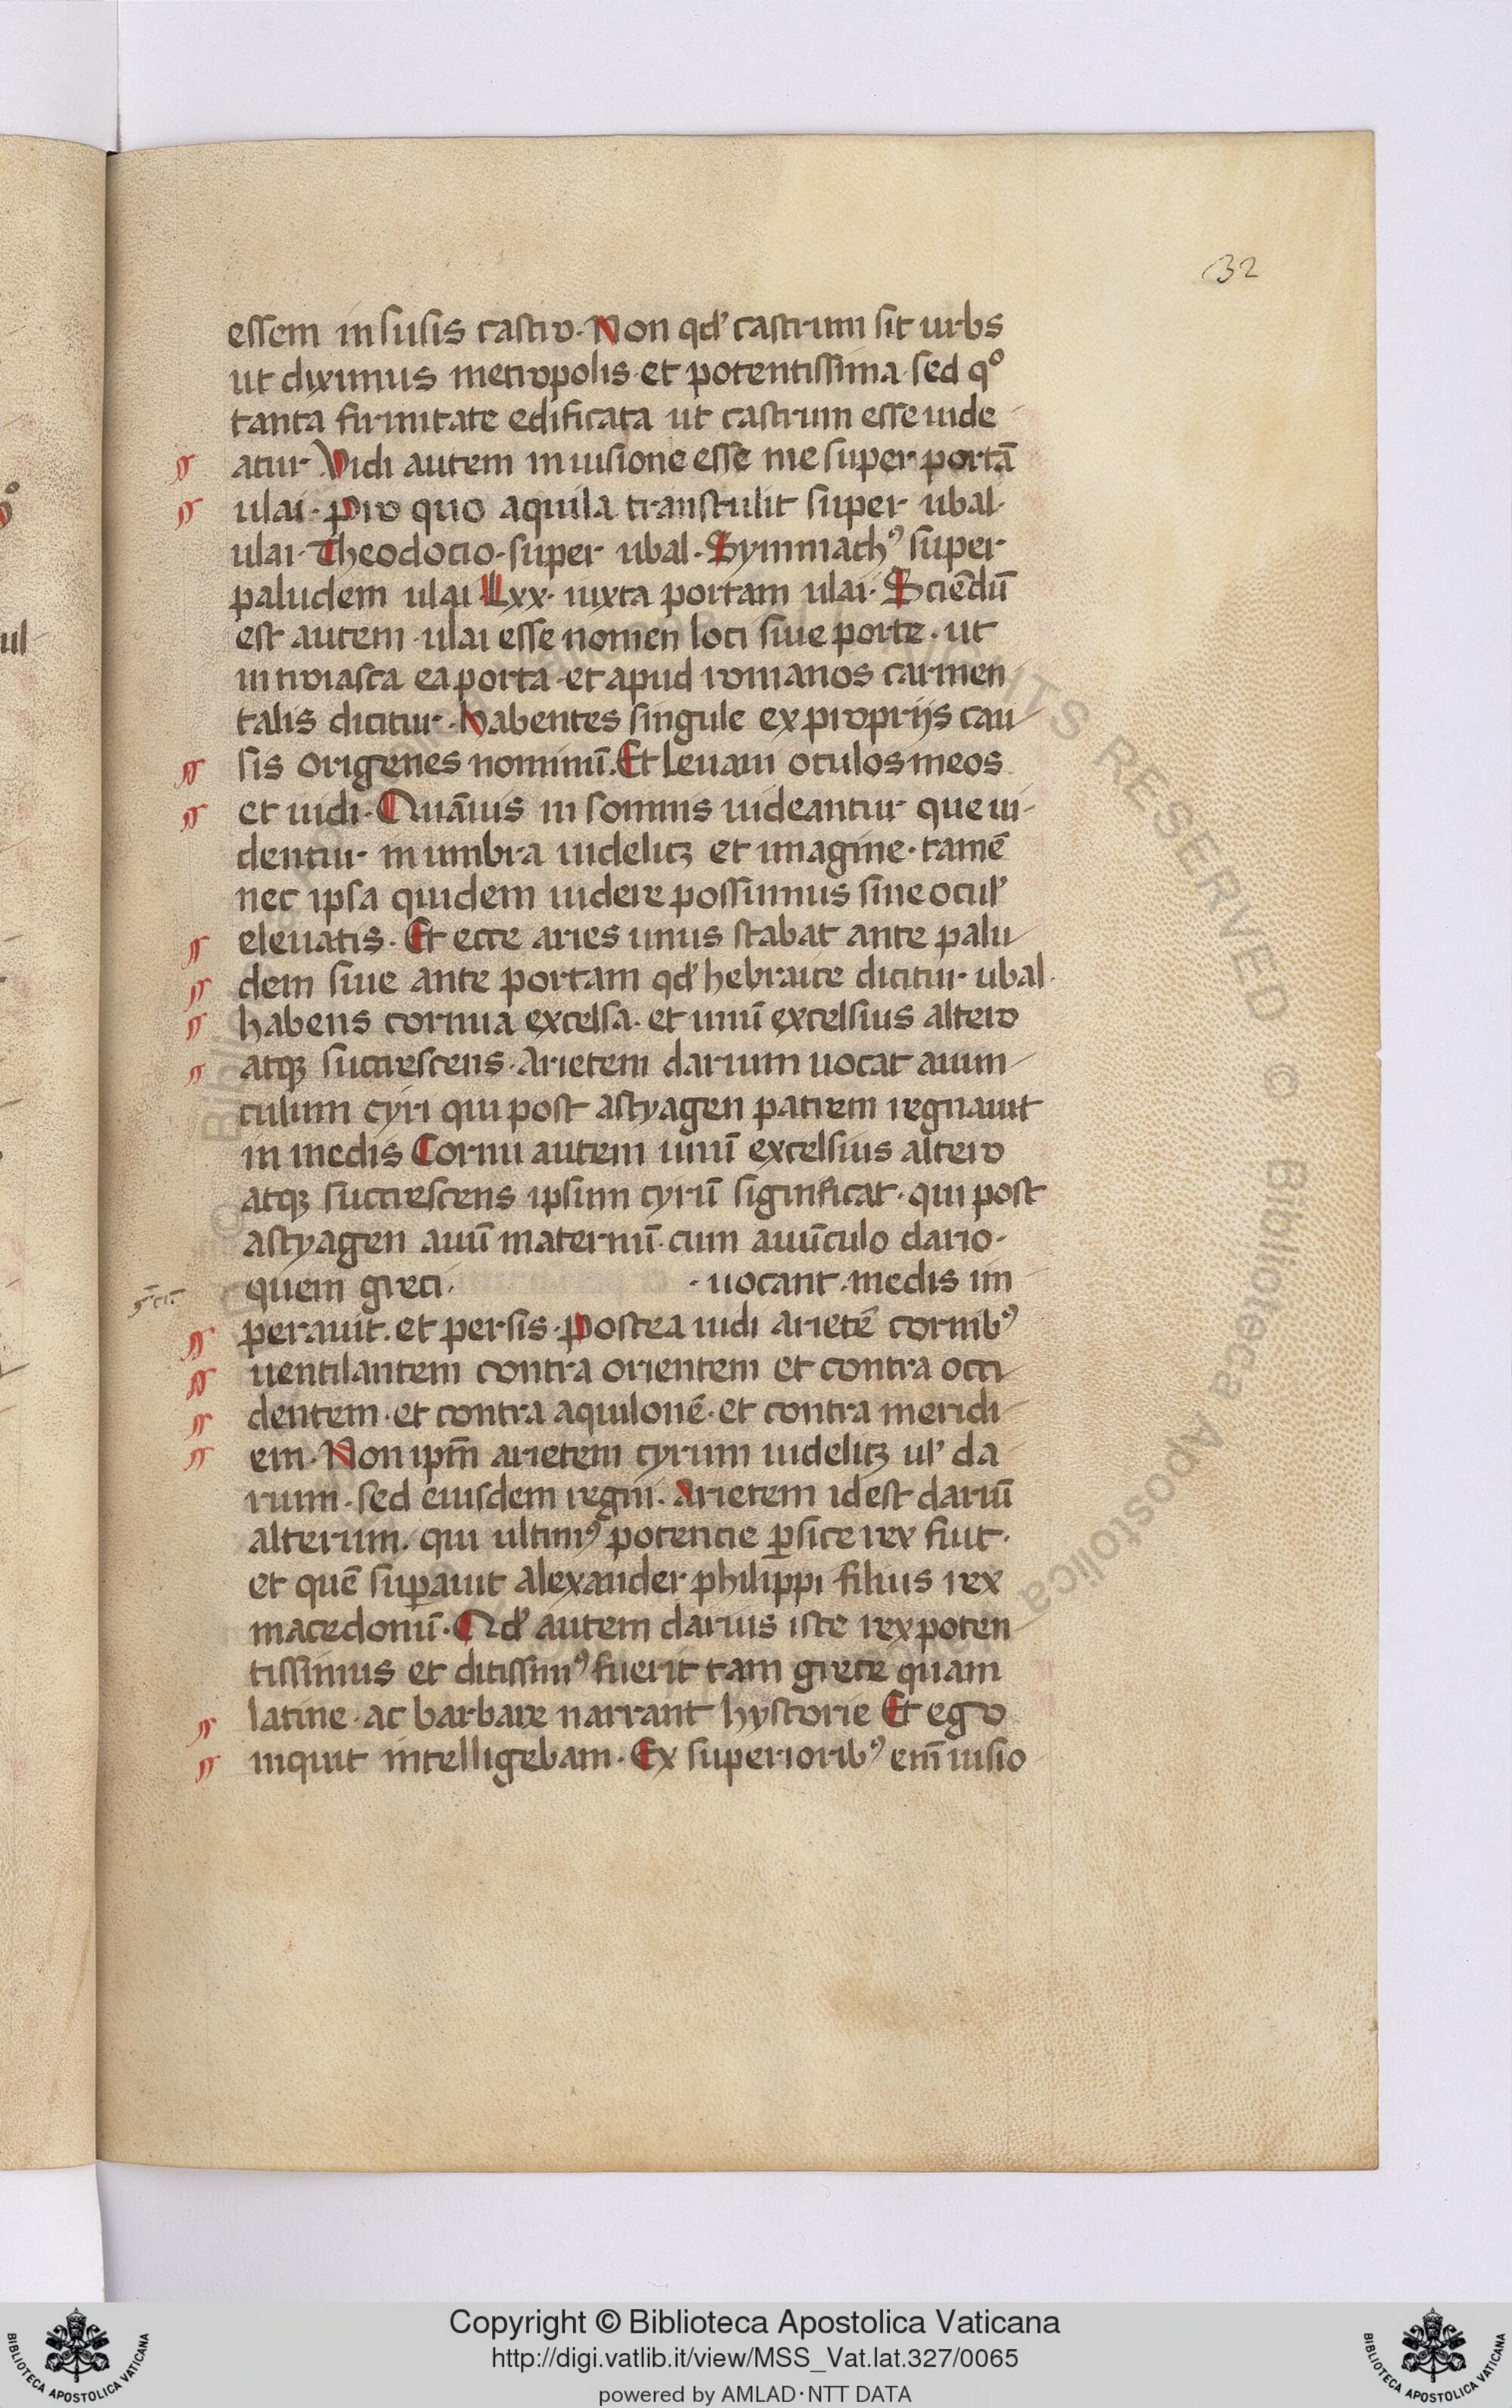 32
essem in susis castro. Non qd' castrum sit urbs
ut diximus metropolis. et potentissima. sed qº
tanta firmitate edificata ut castrum esse uide
atur Vidi autem in uisione esse me super portā
ulai. Pro quo aquila transtulit super ubal.
ulai. Theodocio. super ubal. Symmachꝰ super
paludem ulai Lxx. iuxta portam ulai. Sciēdū
est autem ulai esse nomen loci siue porte. ut
in troiasca ea porta. et apud romanos carmen
talis dicitur. habentes singule ex proprijs cau
sis origenes nominū. Et leuaui oculos meos
et uidi. Quāuis in somnis uideantur que ui-
dentur in umbra uidelicꝫ et imagine. tamē
nec ipsa quidem uidere possumus sine ocul'
eleuatis. Et ecce aries unus stabat ante palu
dem siue ante portam qd' hebraice dicitur ubal.
habens cornua excelsa. et unū excelsius altero
atqꝫ succrescens. Arietem darium uocat auun
culum cyri qui post astyagen patrem regnauit
in medis Cornu autem unū excelsius altero
atqꝫ succrescens ipsum cyrū significat. qui post
astyagen auū maternū. cum auūculo dario.
quem greci. . uocant. medis im
perauit. et persis. Postea uidi arietē cornibꝰ
uentilantem contra orientem et contra occi
dentem. et contra aquilonē. et contra meridi
em. Non ipm̄ arietem cyrum uidelicꝫ ul' da
rium. sed eiusdem regni. Arietem id est dariū
alterum. qui ultimꝰ potencie ꝑsice rex fuit.
et quē suꝑauit alexander philippi filius rex
macedonū. Qd' autem darius iste rex poten
tissimus et ditissimꝰ fuerit tam grece quam
latine. ac barbare narrant hystorie Et ego
inquit intelligebam. Ex superioribꝰ em̄ uisio
Copyright © Biblioteca Apostolica Vaticana
http://digi.vatlib.it/view/MSS_Vat.lat.327/0065
powered by AMLAD·NTT DATA
BIBLIOTECA APOSTOLICA VATICANA
BIBLIOTECA APOSTOLICA VATICANA